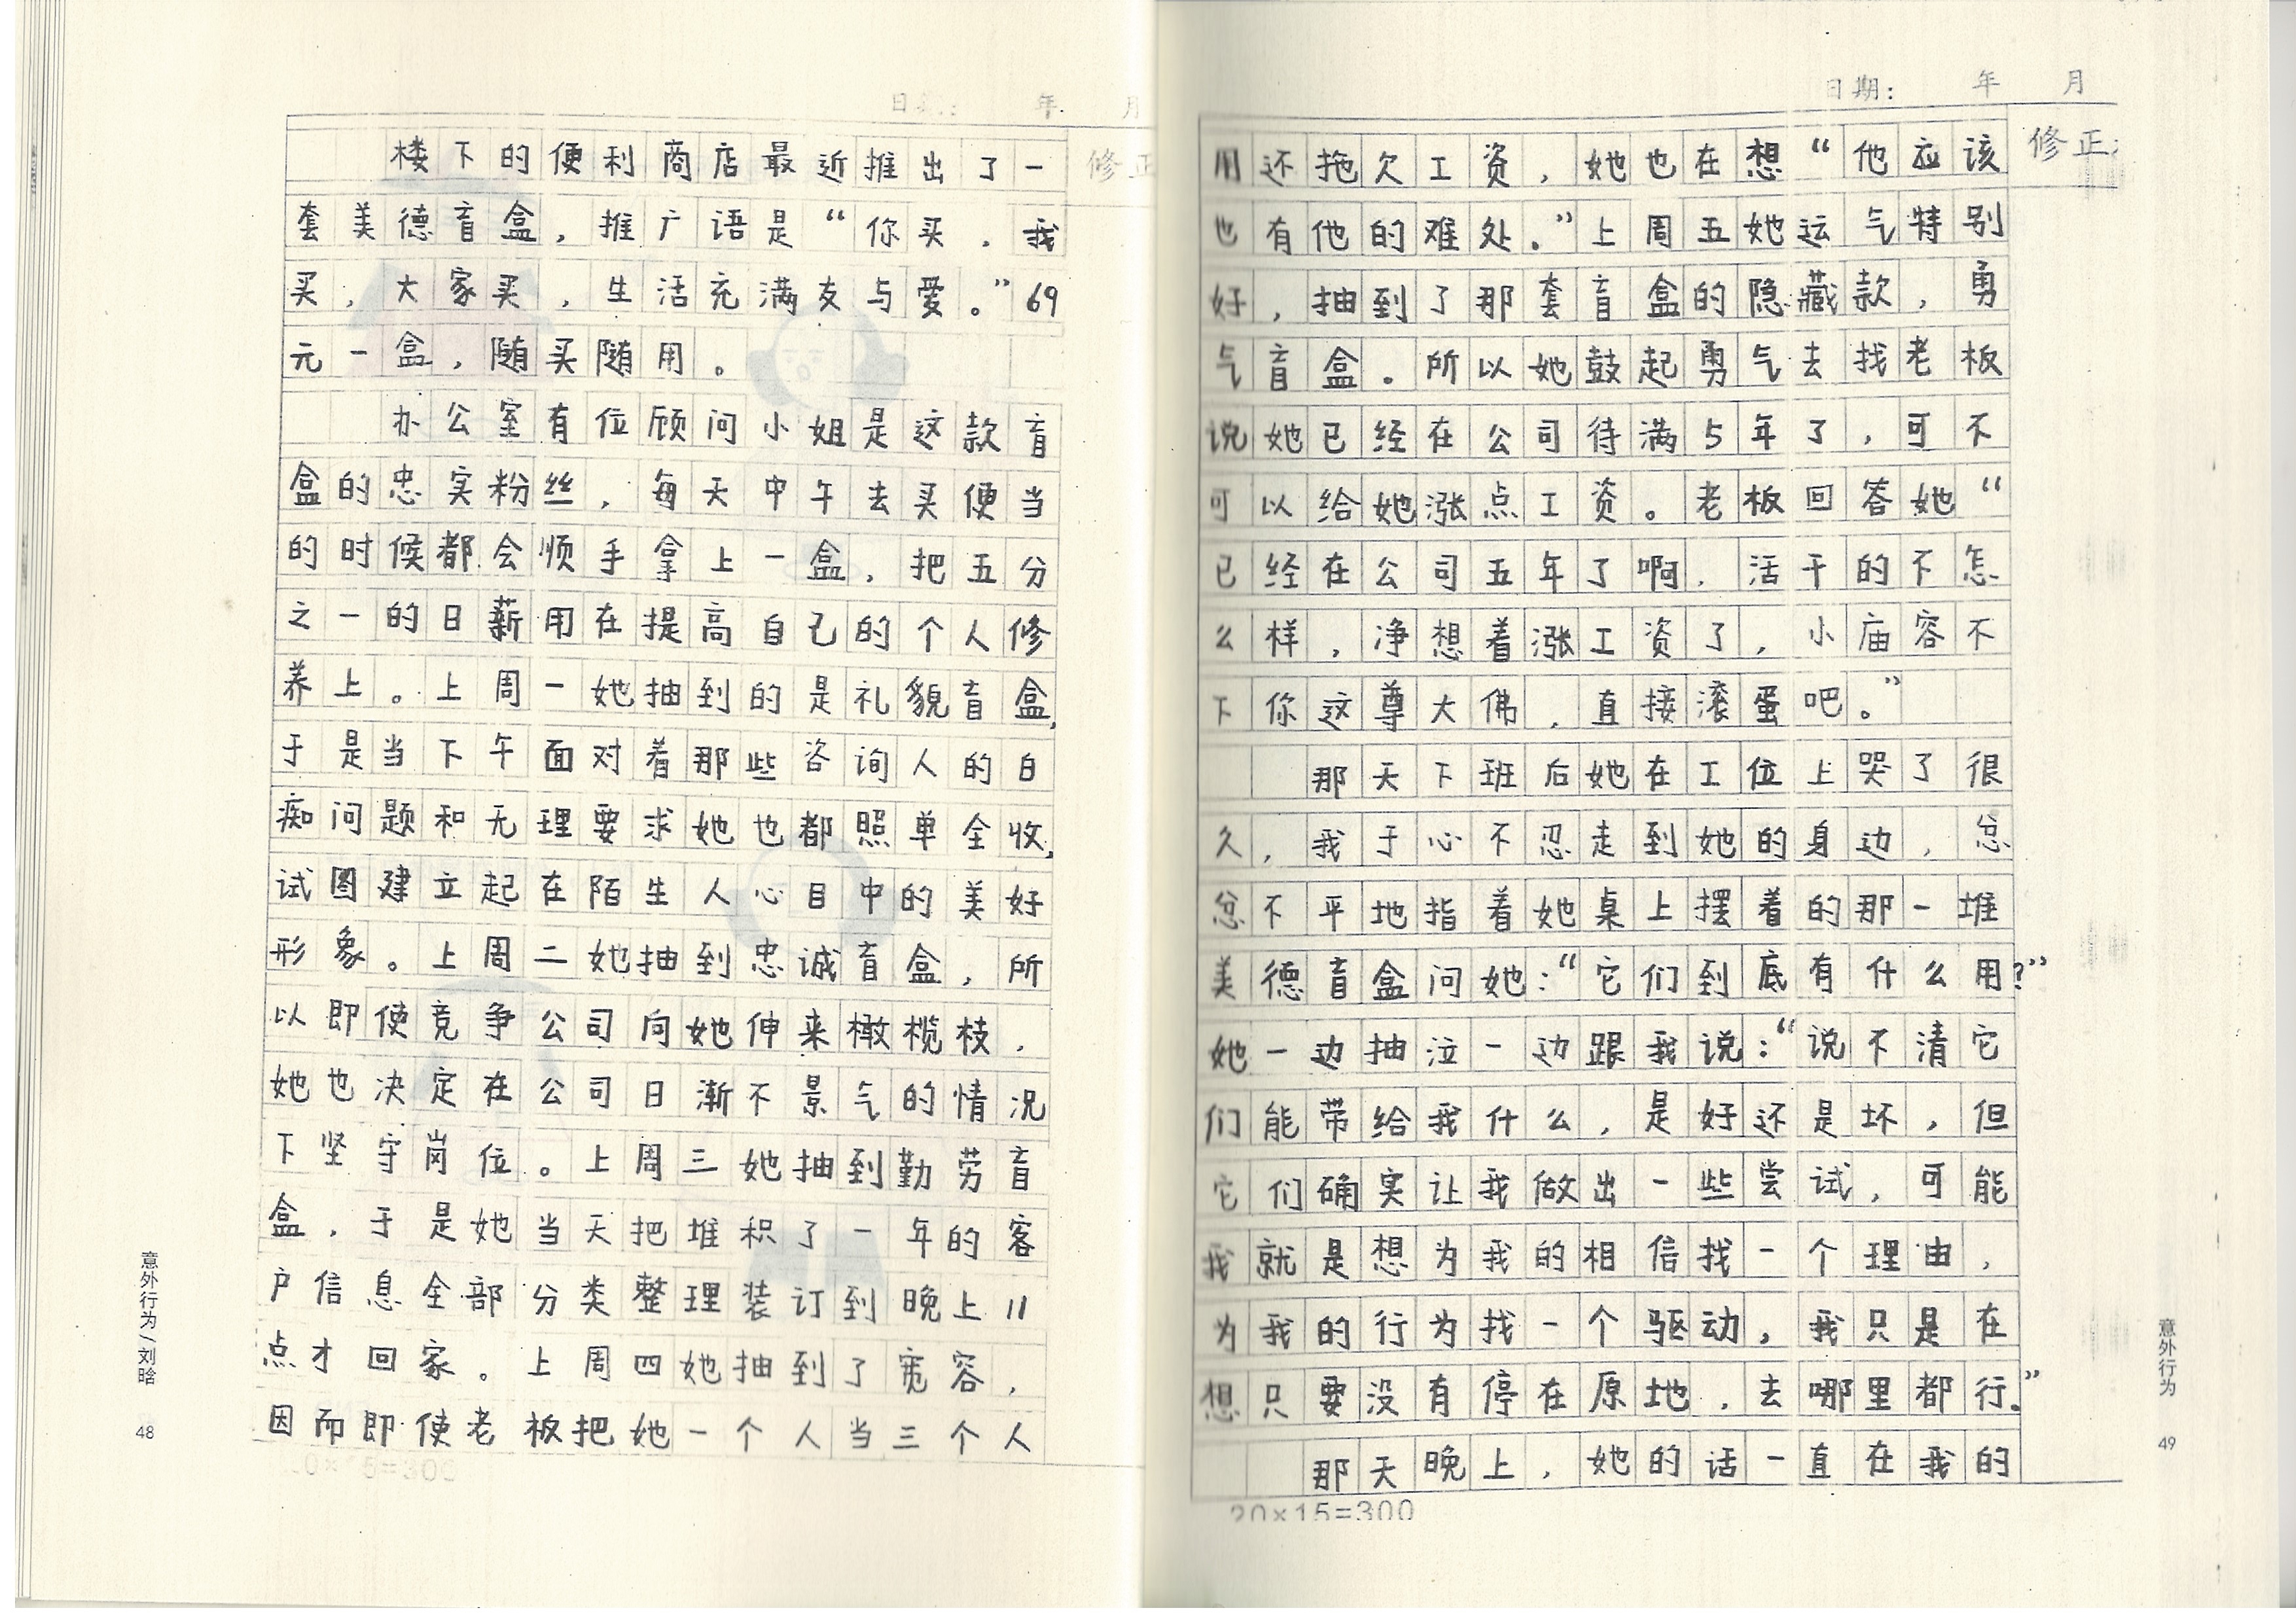 日期： 年 月
修正
楼下的便利商店最近推出了一
套美德盲盒，推广语是“你买，我
买，大家买，生活充满友与爱。”69
元一盒，随买随用。
办公室有位顾问小姐是这款盲
盒的忠实粉丝，每天中午去买便当
的时候都会顺手拿上一盒，把五分
之一的日薪用在提高自己的个人修
养上。上周一她抽到的是礼貌盲盒，
于是当下午面对着那些咨询人的白
痴问题和无理要求她也都照单全收，
试图建立起在陌生人心目中的美好
形象。上周二她抽到忠诚盲盒，所
以即使竞争公司向她伸来橄榄枝，
她也决定在公司日渐不景气的情况
下坚守岗位。上周三她抽到勤劳盲
盒，于是她当天把堆积了一年的客
户信息全部分类整理装订到晚上11
点才回家。上周四她抽到了宽容，
因而即使老板把她一个人当三个人
20×15=300
意外行为/刘晗
48
日期： 年 月
修正
用还拖欠工资，她也在想“他应该
也有他的难处。”上周五她运气特别
好，抽到了那套盲盒的隐藏款，勇
气盲盒。所以她鼓起勇气去找老板
说她已经在公司待满5年了，可不
可以给她涨点工资。老板回答她“
已经在公司五年了啊，活干的不怎
么样，净想着涨工资了，小庙容不
下你这尊大佛，直接滚蛋吧。”
那天下班后她在工位上哭了很
久，我于心不忍走到她的身边，忿
忿不平地指着她桌上摆着的那一堆
美德盲盒问她：“它们到底有什么用？”
她一边抽泣一边跟我说：“说不清它
们能带给我什么，是好还是坏，但
它们确实让我做出一些尝试，可能
我就是想为我的相信找一个理由，
为我的行为找一个驱动，我只是在
想只要没有停在原地，去哪里都行。”
那天晚上，她的话一直在我的
20×15=300
意外行为
49